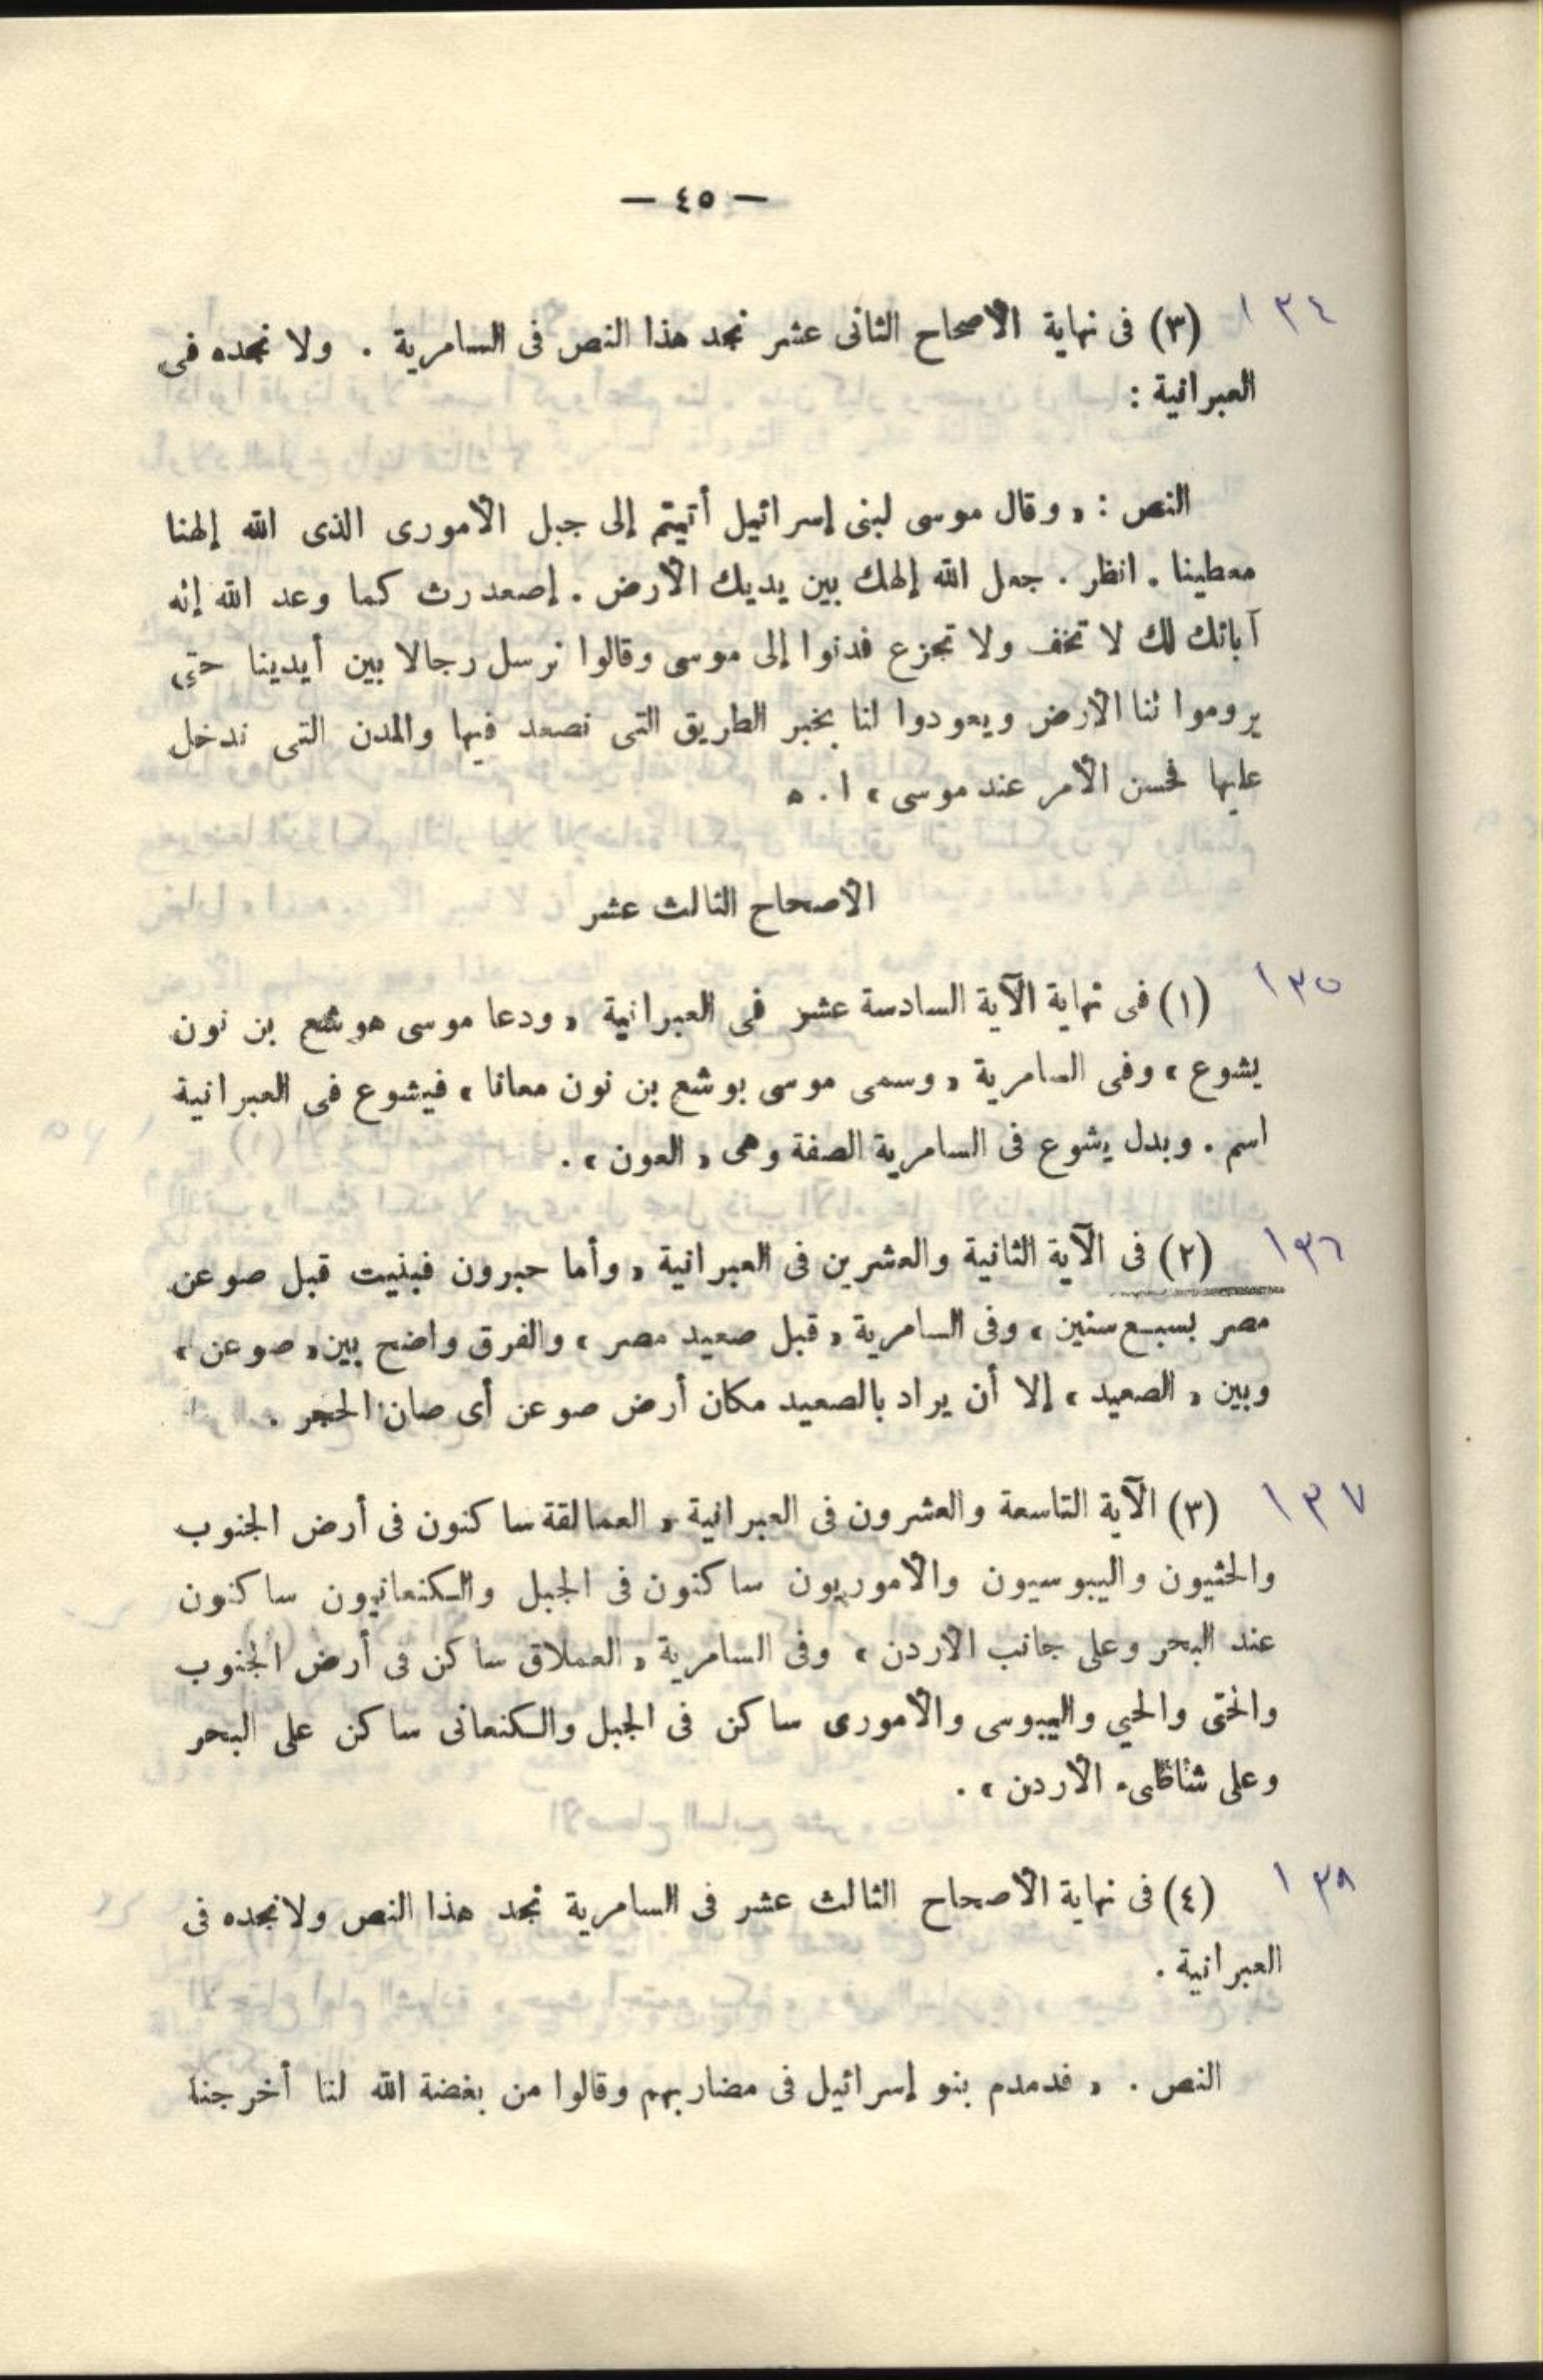 — ٤٥ —
١٣٤ (٣) فى نهاية الأصحاح الثانى عشر نجد هذا النص فى السامرية . ولا نجده فى
العبرانية :
النص : « وقال موسى لبنى إسرائيل أتيتم إلى جبل الأمورى الذى الله إلهنا
معطينا . انظر . جعل الله إلهك بين يديك الأرض . إصعد رث كما وعد الله إله
آبائك لك لا تخف ولا تجزع فدنوا إلى موسى وقالوا نرسل رجالا بين أيدينا حتى
يروموا لنا الأرض ويعودوا لنا بخبر الطريق التى نصعد فيها والمدن التى ندخل
عليها فحسن الأمر عند موسى » ا . ه
الأصحاح الثالث عشر
١٣٥ (١) فى نهاية الآية السادسة عشر فى العبرانية « ودعا موسى هوشع بن نون
يشوع » وفى السامرية « وسمى موسى بوشع بن نون معانا » فيشوع فى العبرانية
اسم . وبدل يشوع فى السامرية الصفة وهى « العون » .
١٣٦ (٢) فى الآية الثانية والعشرين فى العبرانية « وأما حبرون فبنيت قبل صوعن
مصر بسبع سنين » وفى السامرية « قبل صعيد مصر » والفرق واضح بين « صوعن »
وبين « الصعيد » إلا أن يراد بالصعيد مكان أرض صوعن أى صان الحجر .
١٣٧ (٣) الآية التاسعة والعشرون فى العبرانية « العمالقة ساكنون فى أرض الجنوب
والحثيون واليبوسيون والأموريون ساكنون فى الجبل والكنعانيون ساكنون
عند البحر وعلى جانب الأردن » وفى السامرية « العملاق ساكن فى أرض الجنوب
والختى والحيي واليبوسى والأمورى ساكن فى الجبل والكنعانى ساكن على البحر
وعلى شاطىء الأردن » .
١٣٨ (٤) فى نهاية الأصحاح الثالث عشر فى السامرية نجد هذا النص ولا نجده فى
العبرانية .
النص . « فدمدم بنو إسرائيل فى مضاربهم وقالوا من بغضة الله لنا أخرجنا